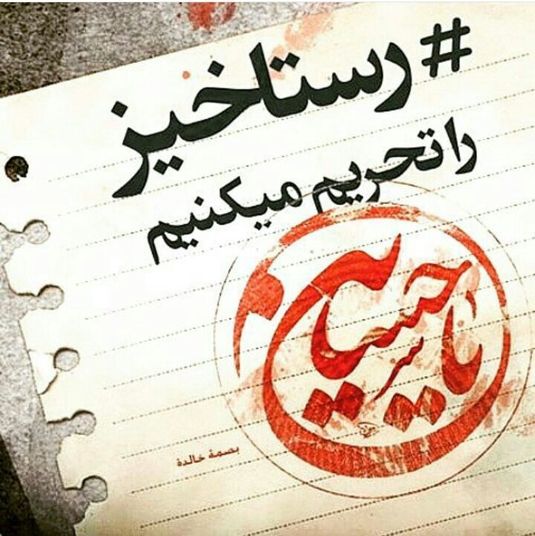 #رستاخیز
را تحریم میکنیم
یا حسین
بصمة خالدة